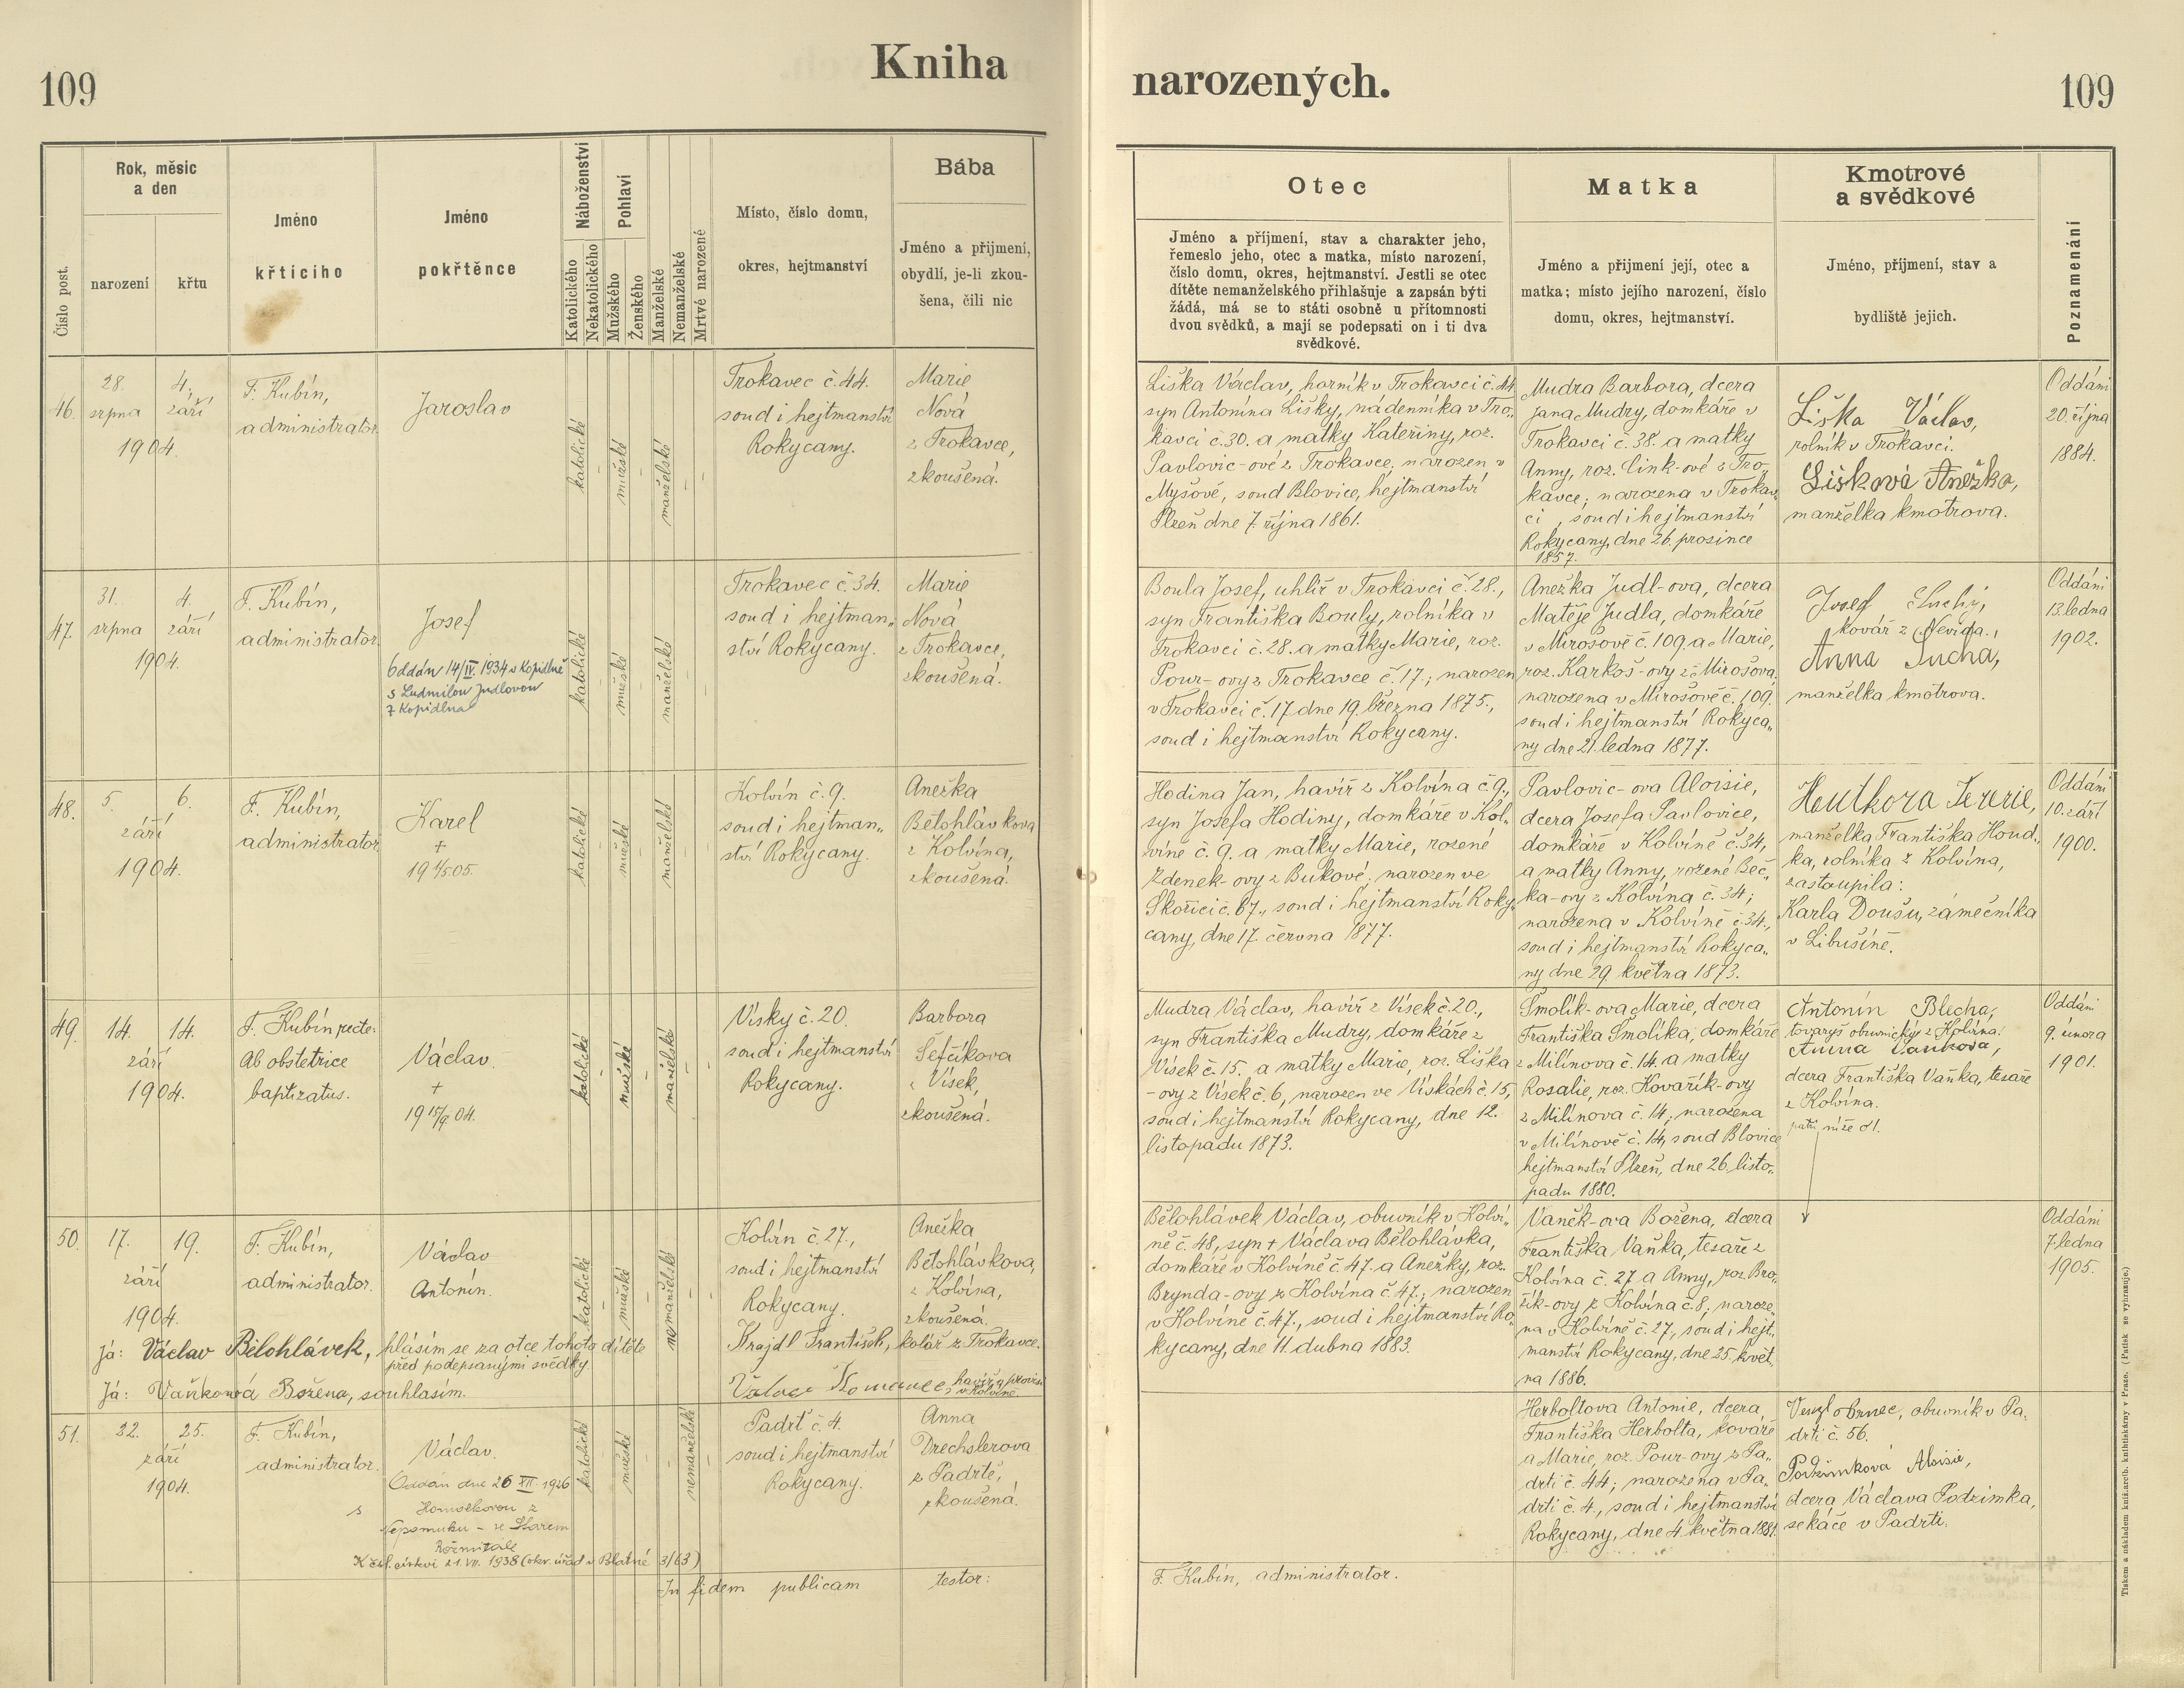 109
Kniha
narozených.
109
Číslo post.
Rok, měsíc
a den
narození
křtu
Jméno
křticího
Jméno
pokřtěnce
Náboženství
Katolického
Nekatolického
Pohlaví
Mužského
Ženského
Manželské
Nemanželské
Mrtvé narozené
Místo, číslo domu,
okres, hejtmanství
Bába
Jméno a přijmení,
obydlí, je-li zkou-
šena, čili nic
Otec
Jméno a příjmení, stav a charakter jeho,
řemeslo jeho, otec a matka, místo narození,
číslo domu, okres, hejtmanství. Jestli se otec
dítěte nemanželského přihlašuje a zapsán býti
žádá, má se to státi osobně u přítomnosti
dvou svědků, a mají se podepsati on i ti dva
svědkové.
Matka
Jméno a přijmení její, otec a
matka; místo jejího narození, číslo
domu, okres, hejtmanství.
Kmotrové
a svědkové
Jméno, příjmení, stav a
bydliště jejich.
Poznamenání
46.
28.
srpna
4.
září
1904.
F. Kubín,
administrator.
Jaroslav
katolické
mužské
manželské
Trokavec č. 44.
soud i hejtmanství
Rokycany.
Marie
Nová
z Trokavce,
zkoušená.
Liška Václav, horník v Trokavci č. 44
syn Antonína Lišky, nádenníka v Tro„
kavci č. 30. a matky Kateřiny, roz.
Pavlovic-ové z Trokavce; narozen v
Myšově, soud Blovice, hejtmanství
Plzeň dne 7. října 1861.
Mudra Barbora, dcera
Jana Mudry, domkáře v
Trokavci č. 38. a matky
Anny, roz. Cink-ové z Tro-
kavce; narozena v Trokav
ci, soud i hejtmanství
Rokycany, dne 26. prosince
1857.
Liška Václav,
rolník v Trokavci.
Lišková Anežka,
manželka kmotrova.
Oddáni
20. října
1884.
47.
31.
srpna
4.
září
1904.
F. Kubín,
administrator.
Josef
Oddán 14/IV. 1934 v Kopidlně
s Ludmilou Judlovou
z Kopidlna
katolické
mužské
manželské
Trokavec č. 34.
soud i hejtman„
ství Rokycany.
Marie
Nová
z Trokavce,
zkoušená.
Boula Josef, uhlíř v Trokavci č. 28.,
syn Františka Bouly, rolníka v
Trokavci č. 28. a matky Marie, roz.
Pour-ovy z Trokavce č. 17.; narozen
v Trokavci č. 17 dne 19. března 1875.,
soud i hejtmanství Rokycany.
Anežka Judl-ova, dcera
Matěje Judla, domkáře
v Mirošově č. 109. a Marie,
roz. Karkoš-ovy z Mirošova,
narozena v Mirošově č. 109.
soud i hejtmanství Rokyca„
ny dne 21. ledna 1877.
Josef Suchý,
kovář z Nevida.,
Anna Suchá,
manželka kmotrova.
Oddáni
13. ledna
1902.
48.
5.
září
6.
1904.
F. Kubín,
administrator
Karel
+
19 1/5 05.
katolické
mužské
manželské
Kolvín č. 9.
soud i hejtman„
ství Rokycany.
Anežka
Bělohlávkova
z Kolvína,
zkoušená.
Hodina Jan, havíř z Kolvína č. 9.,
syn Josefa Hodiny, domkáře v Kol„
víně č. 9. a matky Marie, rozené
Zdenek-ovy z Bukové: narozen ve
Skořici č. 67., soud i hejtmanství Roky
cany, dne 17. června 1877.
Pavlovic-ova Aloisie,
dcera Josefa Pavlovice,
domkáře v Kolvíně č. 34,
a matky Anny, rozené Beč„
ka-ovy z Kolvína č. 34;
narozena v Kolvíně č. 34.,
soud i hejtmanství Rokyca„
ny dne 29. května 1873.
manželka Františka Houd„
ka, rolníka z Kolvína,
zastoupila:
Karla Doušu, zámečníka
v Libušíně.
Oddáni
10. září
1900.
49.
14.
září
14.
1904.
F. Kubín recte:
Ab obstetrice
baptizatus.
Václav.
+
19 15/9 04.
katolické
mužské
manželské
Vísky č. 20.
soud i hejtmanství
Rokycany.
Barbora
Šefčíkova
z Vísek,
zkoušená.
Mudra Václav, havíř z Vísek č. 20.,
syn Františka Mudry, domkáře z
Vísek č. 15. a matky Marie, roz. Liška
-ovy z Vísek č. 6, narozen ve Vískách č. 15,
soud i hejtmanství Rokycany, dne 12.
listopadu 1873.
Smolík-ova Marie, dcera
Františka Smolíka, domkáře
z Milínova č. 14. a matky
Rosalie, roz. Kovařík-ovy
z Milínova č. 14; narozena
v Milínově č. 14, soud Blovice
hejtmanství Plzeň, dne 26. listo„
padu 1880.
Antonín Blecha,
tovaryš obuvnický z Kolvína.
Anna Vaňkova,
dcera Františka Vaňka, tesaře
z Kolvína.
patří níže
Oddáni
9. února
1901.
50.
17.
září
19.
1904.
F. Kubín,
administrator.
Václav
Antonín.
katolické
mužské
nemanželské
Kolvín č. 27.,
soud i hejtmanství
Rokycany.
Anežka
Bělohlávkova,
z Kolvína,
zkoušená.
Já: Václav Bělohlávek, hlásím se za otce tohoto dítěte
před podepsanými svědky
Krajdl František, kolář z Trokavce.
Já: Vaňková Božena, souhlasím.
Bělohlávek Václav, obuvník v Kolví„
ně č. 48, syn + Václava Bělohlávka,
domkáře v Kolvíně č. 47. a Anežky, roz.
Brynda-ovy z Kolvína č. 47.; narozen
v Kolvíně č. 47., soud i hejtmanství Ro„
kycany, dne 11. dubna 1883.
Vaněk-ova Božena, dcera
Františka Vaňka, tesaře z
Kolvína č. 27 a Anny, roz. Bro„
žík-ovy z Kolvína č. 8., naroze„
na v Kolvíně č. 27., soud i hejt„
manství Rokycany, dne 25. květ„
na 1886.
Oddáni
7. ledna
1905.
51.
22.
září
25.
1904.
F. Kubín,
administrator.
Václav.
Oddán dne 26 XII. 1926
s
Homolkovou z
Nepomuku - ve Starém
Rožmitále
K čsl. církvi 21. VII. 1938 (okr. úřad v Blatné 3/63)
katolické
mužské
nemanželské
Padrť č. 4.
soud i hejtmanství
Rokycany.
Anna
Drechslerova
z Padrtě,
zkoušená.
Herboltova Antonie, dcera
Františka Herbolta, kováře
a Marie, roz. Pour-ovy z Pa„
drti č. 44; narozena v Pa„
drti č. 4., soud i hejtmanství
Rokycany, dne 4. května 1881.
obuvník v Pa„
drti č. 56.
Podzimková Aloisie,
dcera Václava Podzimka,
sekáče v Padrti.
In fidem publicam testor:
F. Kubín, administrator.
Tiskem a nákladem kníž. arcib. knihtiskárny v Praze. (Patisk se vyhrazuje.)